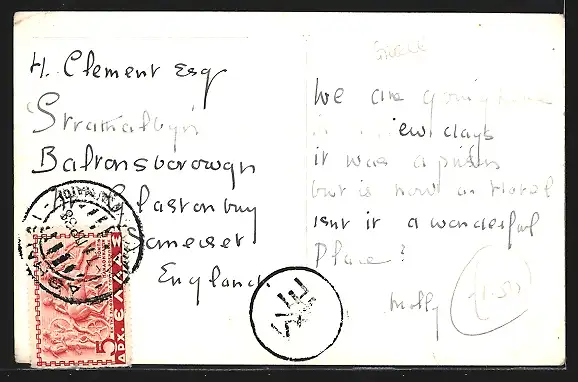 H. Clement Esq
Stramalbyn
Baltonsborowgn
Glastonbury
Somerset
England
Greece
We are going home
in ew days
it was a prison
but is now an Hotel
isnt it a wonderful
Place?
Molly
(1.50)
ΕΛΛΑΣ
5
ΔΡΧ.